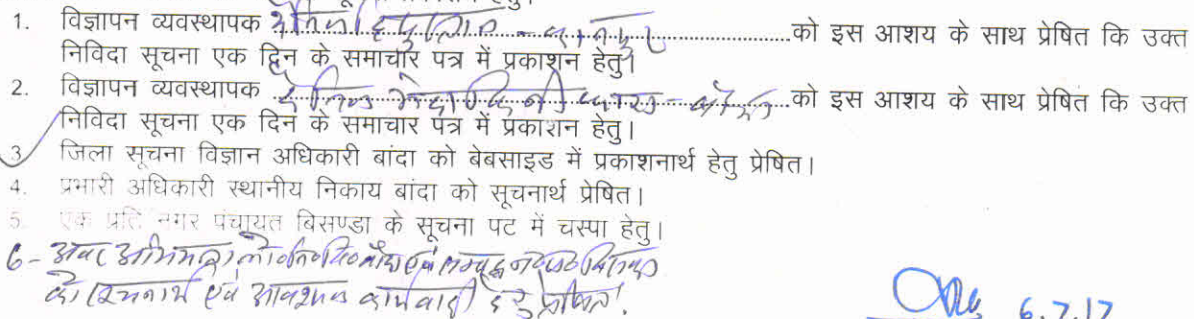 1. विज्ञापन व्यवस्थापक दैनिक हिन्दुस्तान - कानपुर को इस आशय के साथ प्रेषित कि उक्त
निविदा सूचना एक दिन के समाचार पत्र में प्रकाशन हेतु।
2. विज्ञापन व्यवस्थापक दैनिक को इस आशय के साथ प्रेषित कि उक्त
निविदा सूचना एक दिन के समाचार पत्र में प्रकाशन हेतु।
3. जिला सूचना विज्ञान अधिकारी बांदा को बेबसाइड में प्रकाशनार्थ हेतु प्रेषित।
4. प्रभारी अधिकारी स्थानीय निकाय बांदा को सूचनार्थ प्रेषित।
5. एक प्रति नगर पंचायत बिसण्डा के सूचना पट में चस्पा हेतु।
6- अवर अभियन्ता
को सूचनार्थ एवं आवश्यक कार्यवाही हेतु प्रेषित।
6.7.17